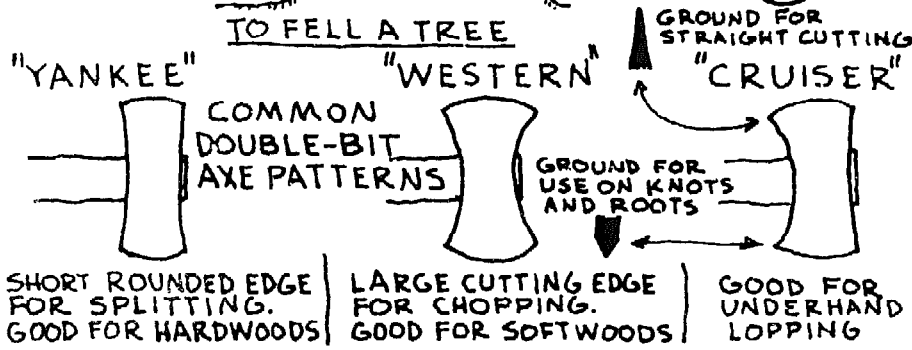 TO FELL A TREE
GROUND FOR
STRAIGHT CUTTING
"YANKEE"
"WESTERN"
"CRUISER"
COMMON
DOUBLE-BIT
AXE PATTERNS
GROUND FOR
USE ON KNOTS
AND ROOTS
SHORT ROUNDED EDGE
FOR SPLITTING.
GOOD FOR HARDWOODS
LARGE CUTTING EDGE
FOR CHOPPING.
GOOD FOR SOFTWOODS
GOOD FOR
UNDERHAND
LOPPING